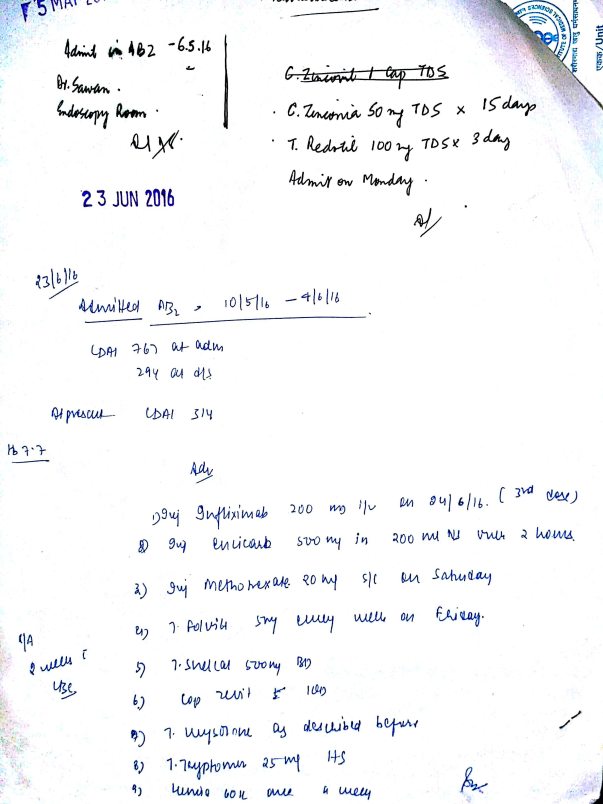 5 MAY
Admit in AB2 - 6.5.16
Dr. Sawan.
Endoscopy Room.
23 JUN 2016
C. Zincovit 1 Cap TDS
C. Zinconia 50 mg TDS x 15 days
T. Redotil 100 mg TDS x 3 day
Admit on Monday.
23/6/16
Admitted AB2, 10/5/16 - 4/6/16
CDAI 767 at adm
294 at d/s
At present CDAI 314
Hb 7.7
Adv
1) Inj Infliximab 200 mg i/v on 24/6/16. (3rd dose)
2) Inj Encicarb 500 mg in 200 ml NS over 2 hours
3) Inj Methotrexate 20 mg s/c on Saturday
4) T. Folvite 5mg every week on Friday.
R/A
2 weeks c
CBC
5) T. Shelcal 500mg BD
6) Cap 1 OD
7) T. Wysolone as described before
8) T. Tryptomer 25 mg HS
9) 60K once a week
एकक /Unit